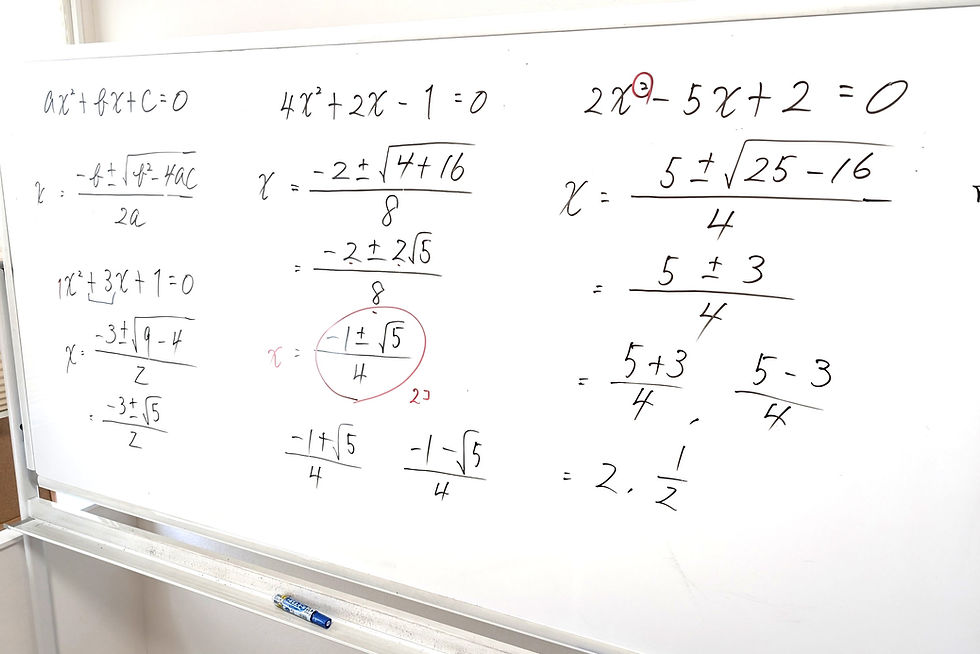 ax²+bx+c=0
x = (-b±√(b²-4ac))/(2a)
1x²+3x+1=0
x = (-3±√(9-4))/2
= (-3±√5)/2
4x²+2x-1=0
x = (-2±√(4+16))/8
= (-2±2√5)/8
x = (-1±√5)/4
2コ
(-1+√5)/4 (-1-√5)/4
2x²-5x+2=0
x = (5±√(25-16))/4
= (5±3)/4
= (5+3)/4, (5-3)/4
= 2, 1/2